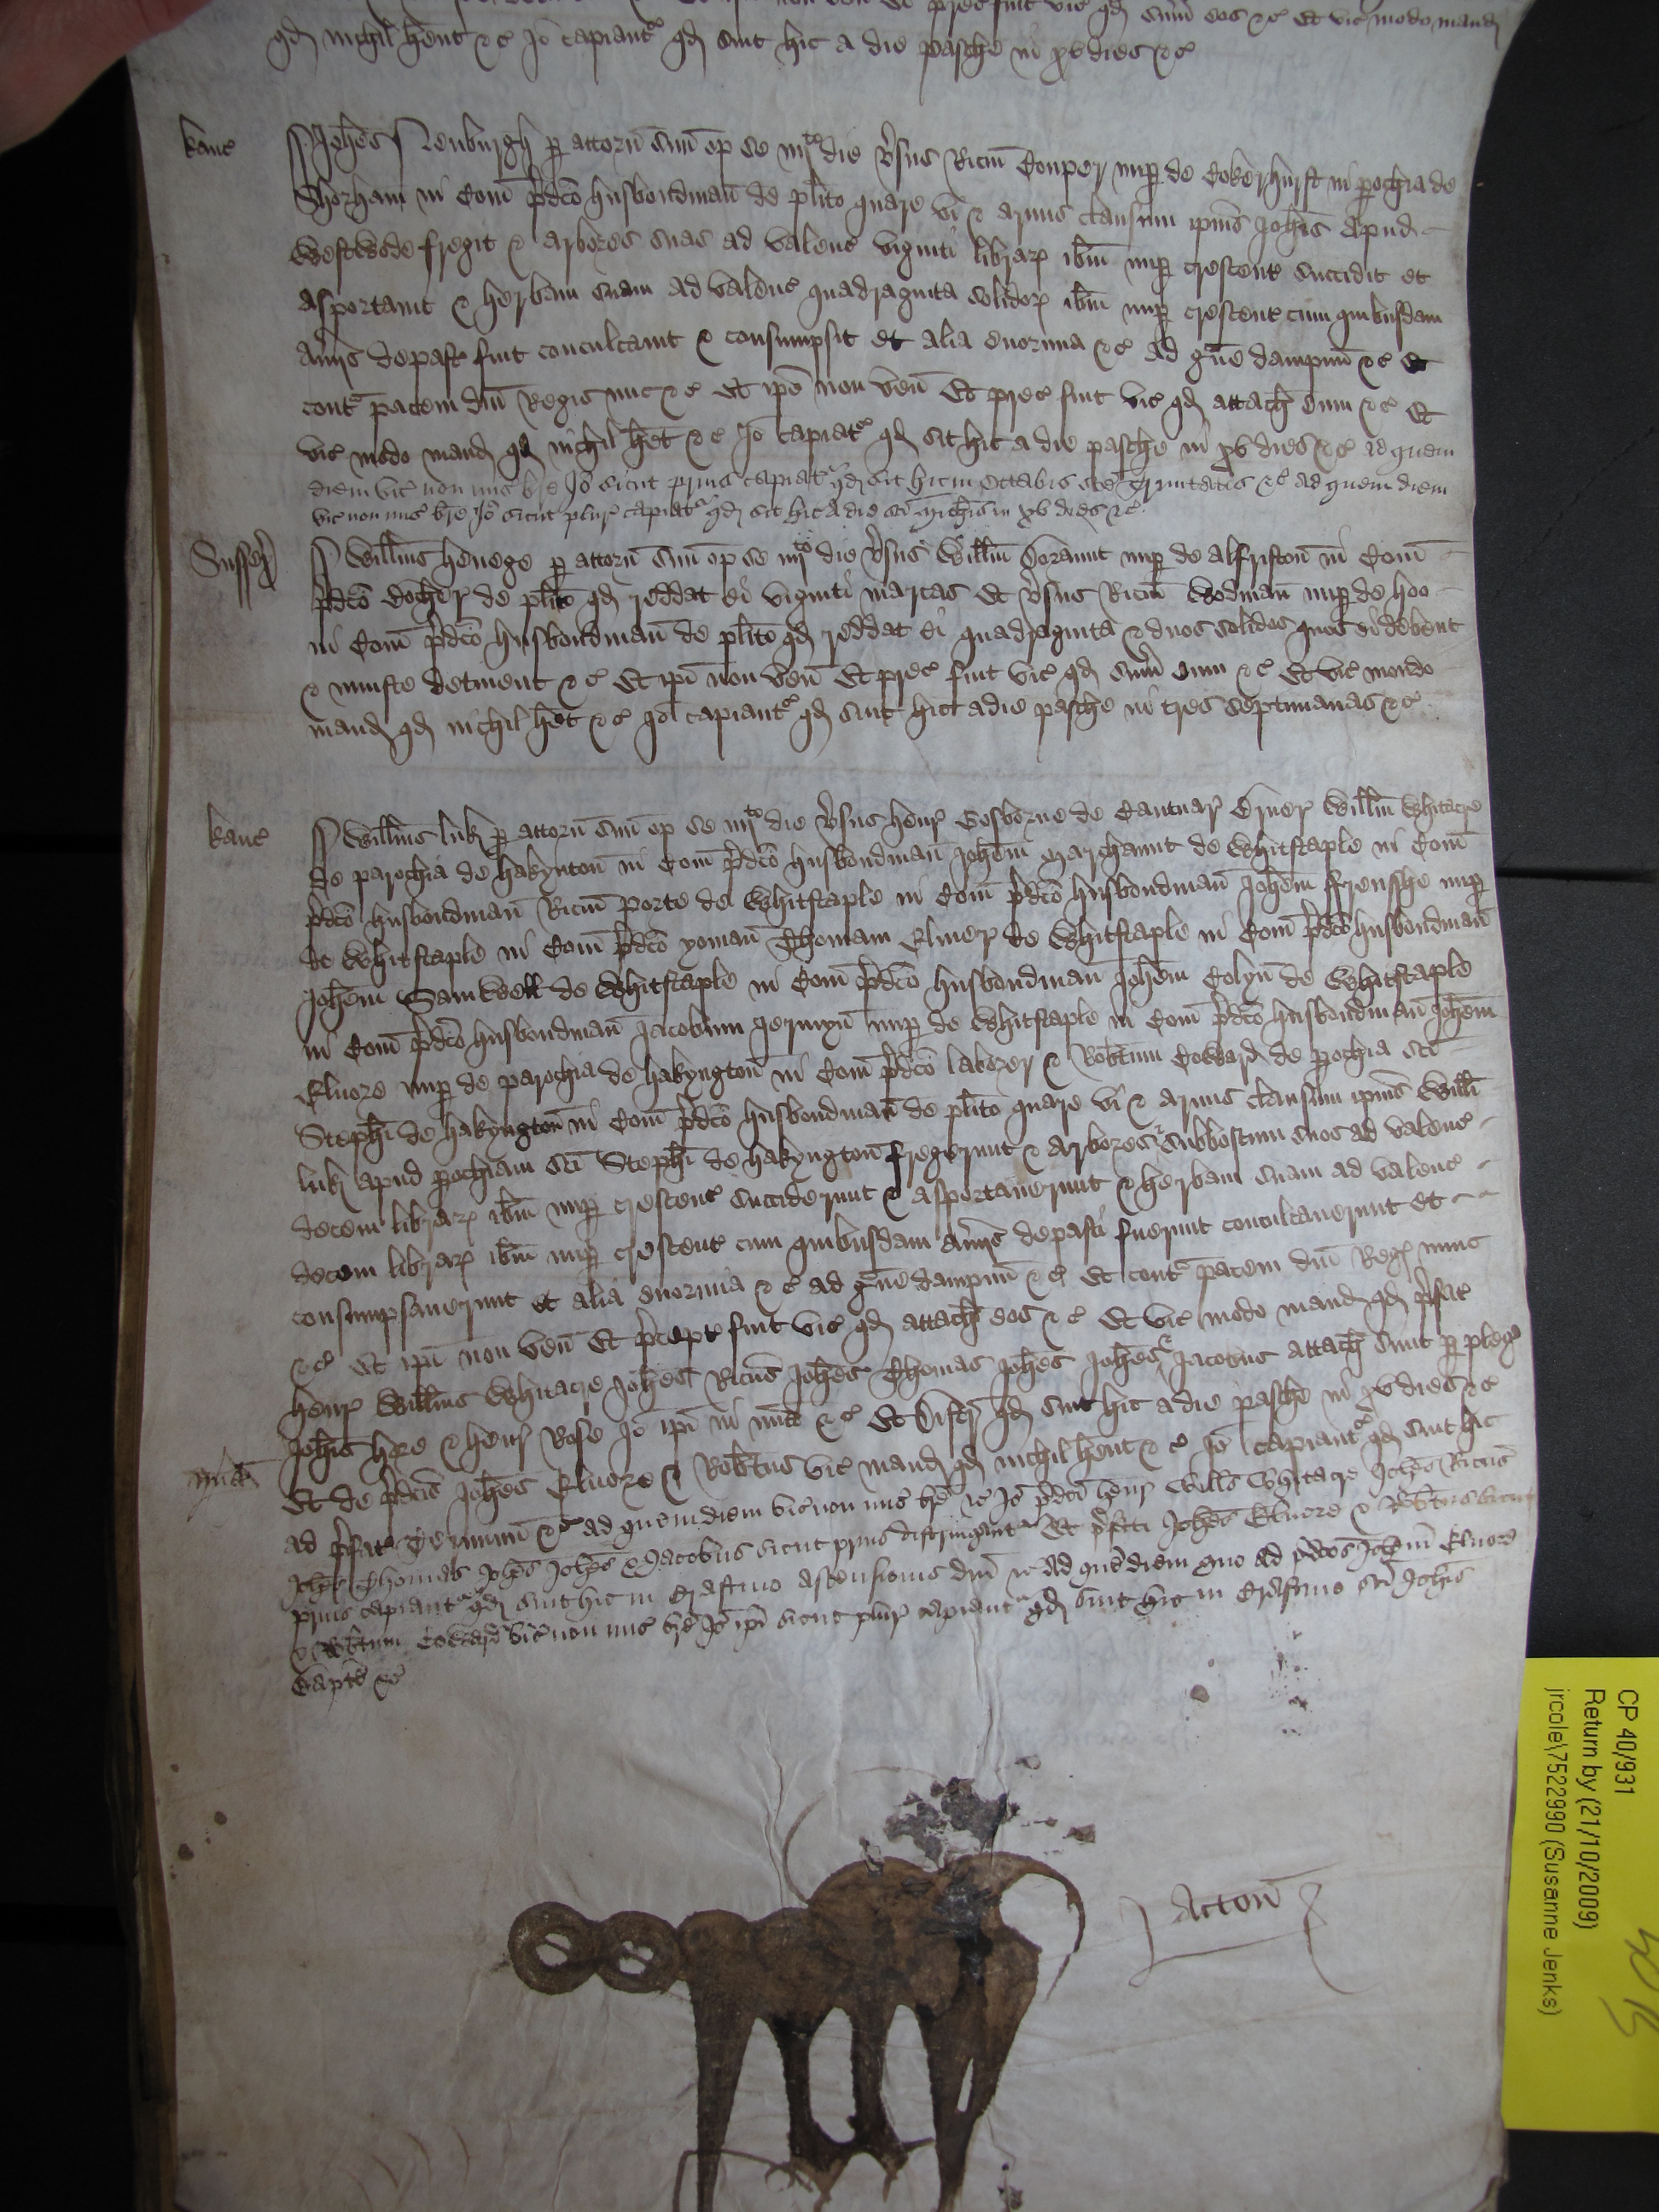 qd nichil hent &c Io capiantr qd sint hic a die pasche in xv dies &c
kanc
Johes Neuburgh p attorn suu op se iiijto die vsus Ricm Couper nup de Cokerhurst in pochia de
Shorham in Com pdco husbondman de plito quare vi & armis clausum ipius Johis apud
Westwode fregit & arbores suas ad valenc viginti librar ibm nup crescent succidit et
asportavit & herbam suam ad valenc quadraginta solidor ibm nup crescent cum quibusdam
aviis depast fuit conculcavit & consumpsit et alia enormia &c ad gve dampnu &c Et
contr pacem dni Regis nuc &c Et ipe non ven Et prec fuit vic qd attach eum &c Et
vic modo mand qd nichil het &c Io capiatr qd sit hic a die pasche in xv dies &c ad quem
diem vic non mis bre Io sicut prius capiatr qd sit hic in Octabis sce Trinitatis &c ad quem diem
vic non mis bre Io sicut plur capiatr qd sit hic a die sci Michis in xv dies &c
Sussex
Willms henege p attorn suu op se iiijto die vsus Willm Soraunt nup de alfriston in Com
pdco Bocher de plito qd reddat ei viginti marcas Et vsus Ricm Wodman nup de hoo
in Com pdco husbondman de plito qd reddat ei quadraginta & duos solidos quos ei debent
& iniuste detinent &c Et ipi non ven Et prec fuit vic qd sum eum &c Et vic mondo
mand qd nichil het &c Io capiantr qd sint hic a die pasche in tres septimanas &c
kanc
Willms luk p attorn suu op se iiijto die vsus henr Gosborne de Cantuar Gruer Willm Whitacre
de parochia de hakynton in Com pdco husbondman Johem Marchaunt de Whitstaple in Com
pdco husbondman Ricm porte de Whitstaple in Com pdco husbondman Johem ffrensshe nup
de Whitstaple in Com pdco yoman Thomam Elmer de Whitstaple in Com pdco husbondman
Johem Samwell de Whitstaple in Com pdco husbondman Johem Colyn de Whitstaple
in Com pdco husbondman Jacobum Jermyn nup de Whitstaple in Com pdco husbondman Johem
Elnore nup de parochia de hakyngton in Com pdco laborer & Robtum Coward de pochia sci
Stephi de hakyngton in Com pdco husbondman de plito quare vi & armis clausum ipius Willi
luk apud pochiam sci Stephi de hakyngton fregerunt & arbores & subboscum suos ad valenc
decem librar ibm nup crescent succiderunt & asportaverunt & herbam suam ad valenc
decem librar ibm nup crescent cum quibusdam aviis depasti fuerunt conculcaverunt et
consumpsaverunt et alia enormia &c ad gve dampnu &c Et contr pacem dni Reg nunc
&c Et ipi non ven Et precept fuit vic qd attach eos &c Et vic modo mand qd pfat
henr Willms Whitacre Johes Ricus Johes Thomas Johes Johes & Jacobus attach sunt p pleg
Johis hore & henr Rose Io ipi in mia &c Et distr qd sint hic a die pasche in xv dies &c
mia
Et de pdcis Johes Elnore & Robtus vic mand qd nichil hent &c Io capiantr qd sint hic
ad pfat terminum &c ad quem diem vic non mis bre &c Io pdci henr Willms Whitacre Johes Ricus
Johes Thomas Johes Johes & Jacobus sicut prius distringantr Et pfati Johes Elnore & Robtus sicut
prius capiantr qd sint hic in Crastino Ascensionis dni &c Ad que diem quo ad pdcos Johem Elnore
& Robtum Coward vic non mis bre Io ipi sicut plur capiantr qd sint hic in Crastino sci Johis
Bapte &c
Acton
CP 40/931
Return by (21/10/2009)
jrcole\7522990 (Susanne Jenks)